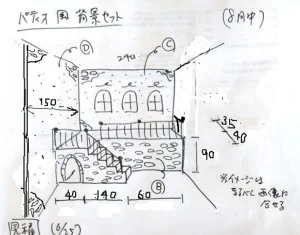 パティオ風 背景セット (8月中)
D
C
240
150
35
40
90
※イメージは
なるべく画像に
合せる
40 140 60
B
見積 (6/25)